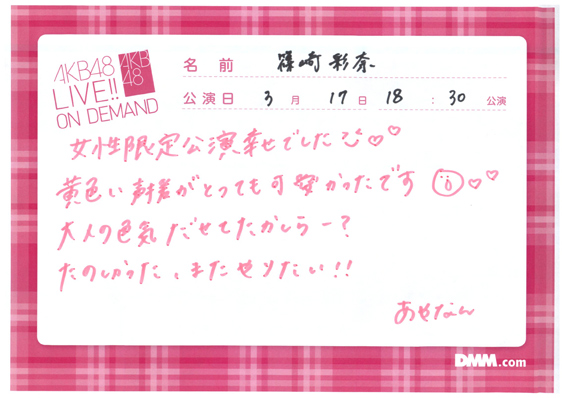 AKB48
LIVE!!
ON DEMAND
AKB
48
名前 篠崎彩奈
公演日 3月17日 18:30 公演
女性限定公演幸せでした♡♡
黄色い声援がとっても可愛かったです♡♡
大人の色気だせてたかしらー?
たのしかった、またやりたい!!
あやなん
DMM.com